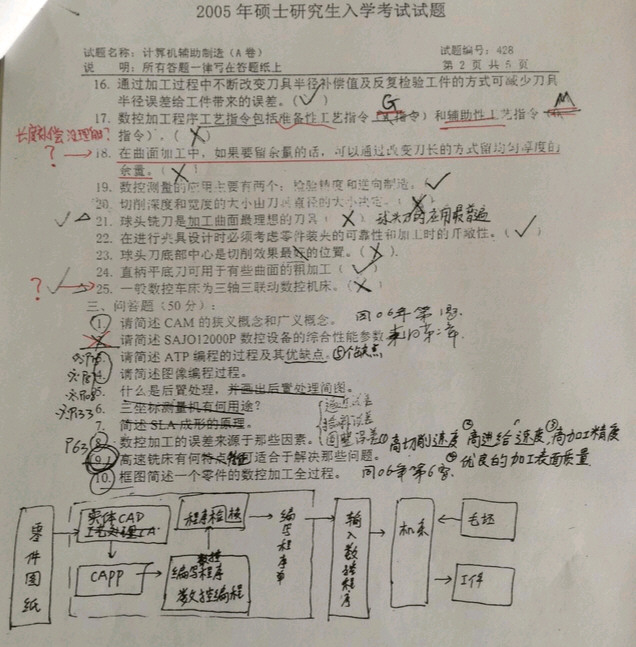 2005年硕士研究生入学考试试题
试题名称：计算机辅助制造（A卷） 试题编号：428
说 明：所有答题一律写在答题纸上 第2页 共5页
16. 通过加工过程中不断改变刀具半径补偿值及反复检验工件的方式可减少刀具
半径误差给工件带来的误差。(√)
G M
17. 数控加工程序工艺指令包括准备性工艺指令 指令）和辅助性工艺指令
指令）。(X)
长度补偿
? 18. 在曲面加工中，如果要留余量的话，可以通过改变刀长的方式留均匀厚度的
余量。(X)
19. 数控测量的应用主要有两个：检验精度和逆向制造。(√)
20. 切削深度和宽度的大小由刀具直径的大小决定。(X)
21. 球头铣刀是加工曲面最理想的刀具(X) 球头刀的应用最普遍
22. 在进行夹具设计时必须考虑零件装夹的可靠性和加工时的开敞性。(√)
23. 球头刀底部中心是切削效果最 的位置。(X).
24. 直柄平底刀可用于有些曲面的粗加工(√)
? 25. 一般数控车床为三轴三联动数控机床。(X)
三、问答题（50分）：
1. 请简述CAM的狭义概念和广义概念。 同06年第1题.
2. 请简述SAJO12000P数控设备的综合性能参数 第二章.
3. 请简述ATP编程的过程及其优缺点. 缺点
4. 请简述图像编程过程。
5. 什么是后置处理，并画出后置处理简图。
6. 三坐标测量机有何用途？
7. 简述SLA成形的原理。
P63 8. 数控加工的误差来源于那些因素。 圆整误差
9. 高速铣床有何特点 适合于解决那些问题。 ①高切削速度 ②高进给速度 ③高加工精度
④优良的加工表面质量
10. 框图简述一个零件的数控加工全过程。 同06年第6题.
零件图纸
实体CAD
CAPP
程序检核
编写程序
数控编程
编写程序单
输入数控程序
机床
毛坯
工件